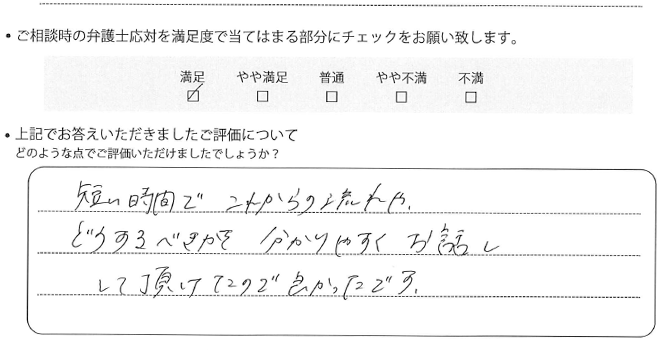 • ご相談時の弁護士応対を満足度で当てはまる部分にチェックをお願い致します。
満足 やや満足 普通 やや不満 不満
☑ □ □ □ □
• 上記でお答えいただきましたご評価について
どのような点でご評価いただけましたでしょうか？
短い時間で これからの流れや、
どうするべきかを 分かりやすく お話し
して頂けたので良かったです。